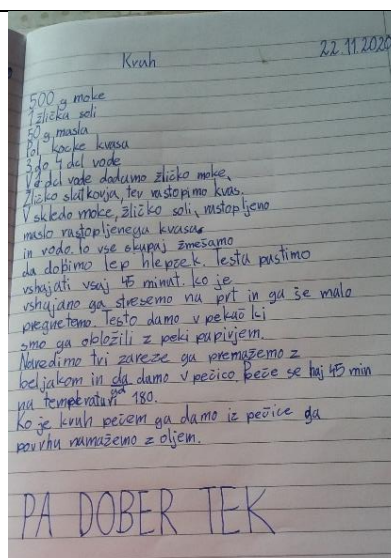 Kruh
22.11.2020
500 g moke
1 žlička soli
50 g masla
Pol kocke kvasa
3 do 4 dcl vode
V 1 dcl vode dodamo žličko moke,
žličko slatkovja, ter rastopimo kvas.
V skledo moke, žličko soli, rastopljeno
maslo rastopljenega kvasa
in vodo. to vse skupaj zmešamo
da dobimo lep hlepček. Testa pustimo
vshajati vsaj 45 minut. ko je
vshajano ga stresemo na prt in ga še malo
pregnetemo. Testo damo v pekač ki
smo ga obložili z peki papirjem.
Naredimo tri zareze ga premažemo z
beljakom in da damo v pečico. Peče se naj 45 min
na temperaturi 180.
Ko je kruh pečem ga damo iz pečice ga
povrhu namažemo z oljem.
PA DOBER TEK